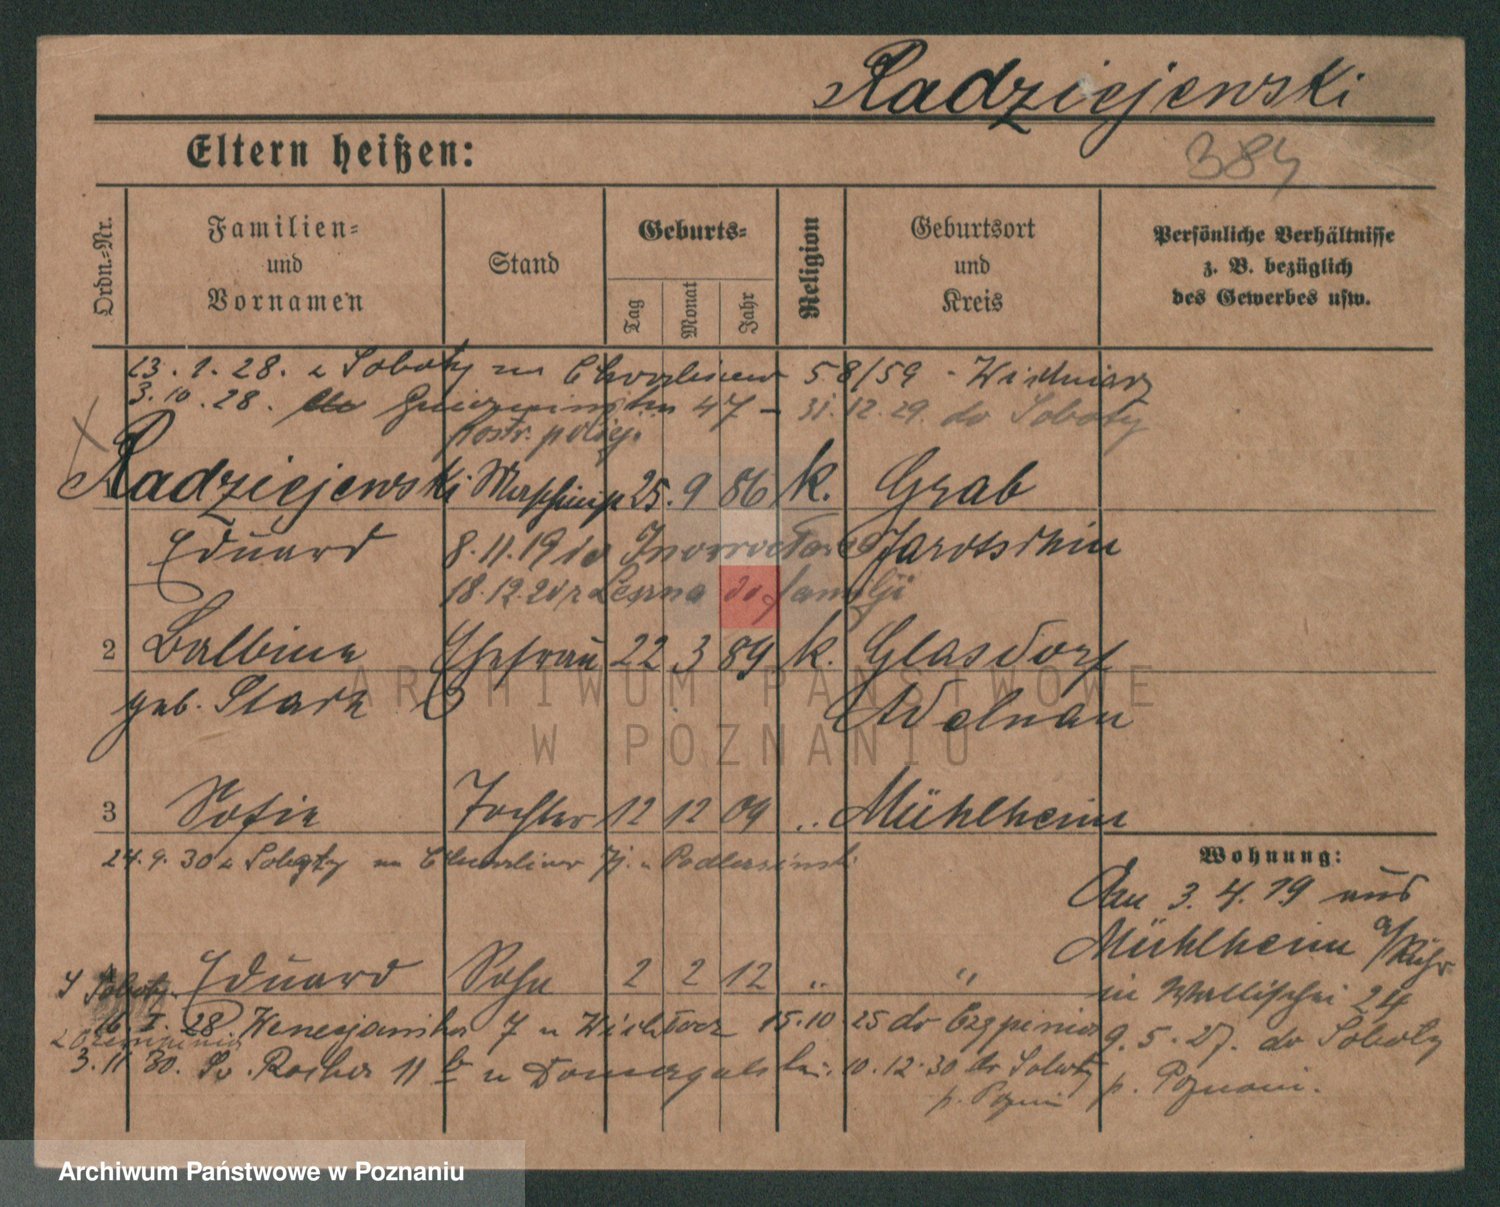 Radziejewski
Eltern heißen:
384
Ordn.-Nr.
Familien-
und
Vornamen
Stand
Geburts-
Tag
Monat
Jahr
Religion
Geburtsort
und
Kreis
Persönliche Verhältnisse
z. B. bezüglich
des Gewerbes usw.
13. 1. 28. z Soboty na 58/59 -
3.10.28. 47 - 31.12.29. do Soboty
Postr. policj.
Radziejewski 25. 9 86 k. Grab
Eduard 8.11.19 do Inowrocławia Jarotschin
18.12. z Leszna do familji
2 Balbine Ehefrau 22 3 89 k. Glasdorf
geb. Stark Adelnau
ARCHIWUM PAŃSTWOWE
W POZNANIU
3 Sofie Tochter 12 12 09 „ Mühlheim
24.9.30 z Soboty na
Wohnung:
An 3. 4. 19 aus
Mühlheim a/Ruhr
in Wallischei 24
9. 5. 27. do Soboty
p. Poznań.
4 Eduard Sohn 2 2 12 „ "
z Soboty
16. I. 28. Wenecjańska 7 u 15.10 25 do
3.11 30. Sw. Rocha 11 b u 10.12.30 do Soboty
p. Pozn
Archiwum Państwowe w Poznaniu